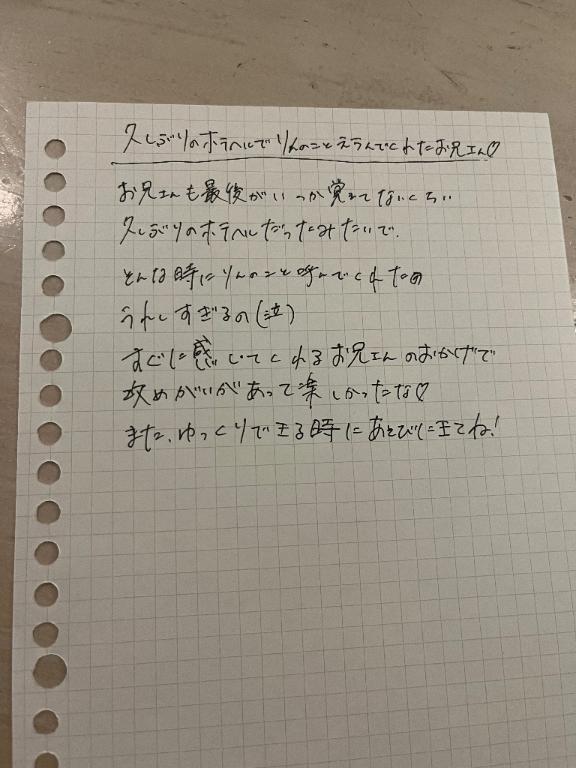 久しぶりのホテヘルでりんのことえらんでくれたお兄さん♡
お兄さんも最後がいつか覚えてないくらい
久しぶりのホテヘルだったみたいで、
そんな時にりんのこと呼んでくれたの
うれしすぎるの(泣)
すぐに感じてくれるお兄さんのおかげで
攻めがいがあって楽しかったな♡
また、ゆっくりできる時にあそびに王てね!